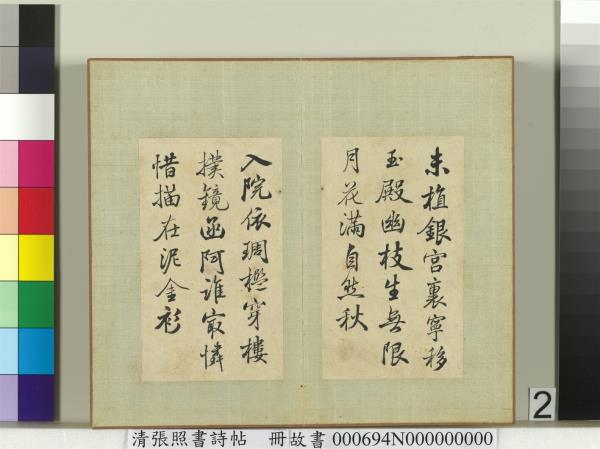 未植銀宮裏寧移
玉殿幽枝生無限
月花滿自然秋
入院依琱檻穿樓
撲鏡函阿誰最憐
惜描在泥金衫
2
清張照書詩帖 冊故書 000694N000000000